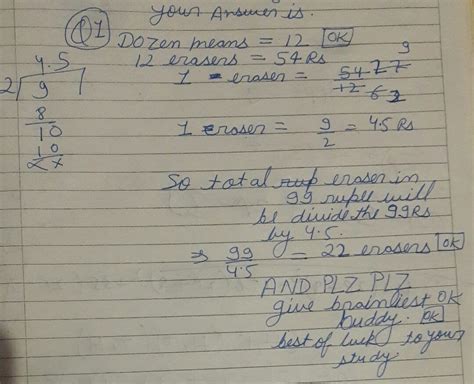 your Answer is.
Q1
Dozen means = 12 OK
12 erasers = 54 Rs
1 eraser = 54 27 9
12 6 2
1 eraser = 9/2 = 4.5 Rs
4.5
2 9
8
10
10
XX
So total eraser in
99 rupee will
be divide the 99Rs
by 4.5.
⇒ 99/4.5 = 22 erasers OK
AND PLZ PLZ
give brainliest OK
buddy. OK
best of luck to your
study